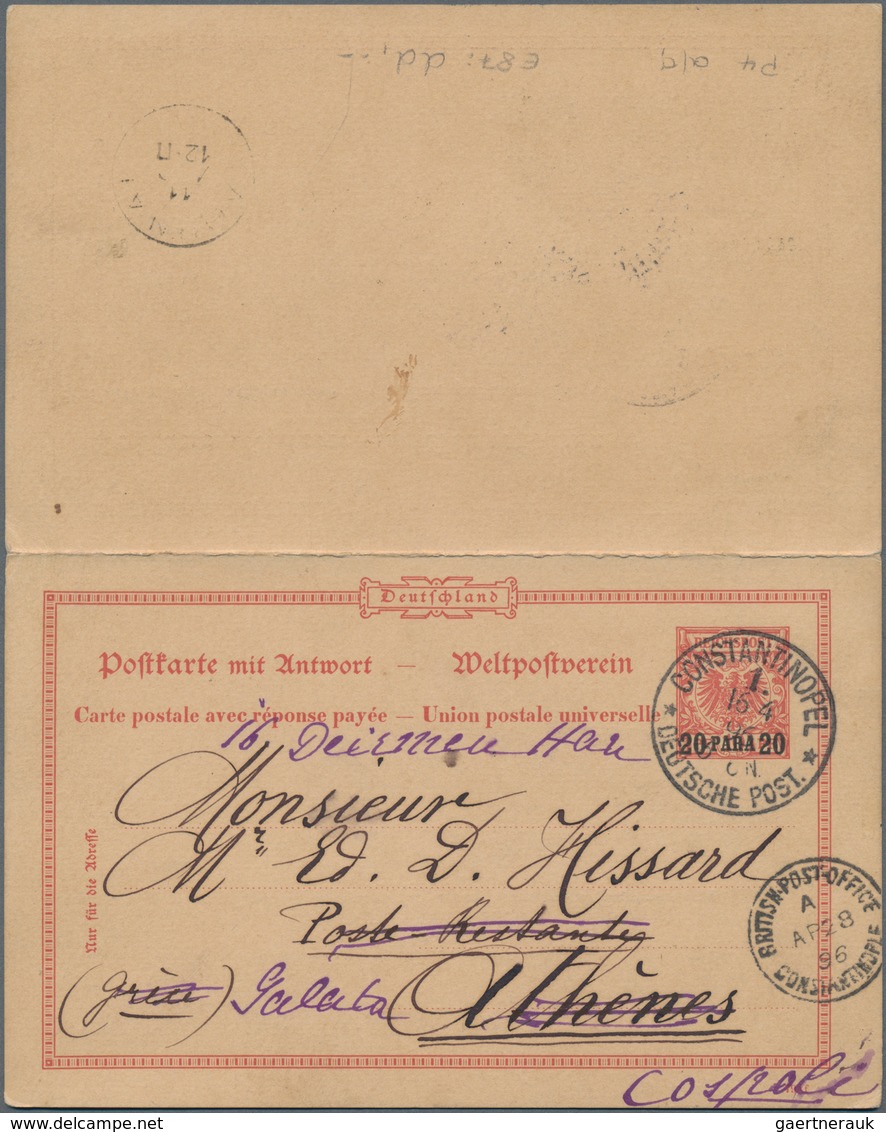 P4 a/q
E87: dd,--
11
12·Π
Deutschland
REICHSPOST
Postkarte mit Antwort — Weltpostverein
Carte postale avec réponse payée — Union postale universelle
CONSTANTINOPEL
1.
15 4
96
20 PARA 20
N.
★ DEUTSCHE POST. ★
16 Deirmen Han
Monsieur
Mr. Ed. D. Hissard
Nur für die Adresse
Poste Restante
(Grèce) Galata Athènes
BRITISH·POST·OFFICE
A
AP 28
96
CONSTANTINOPLE
Cospoli
gaertnerauk